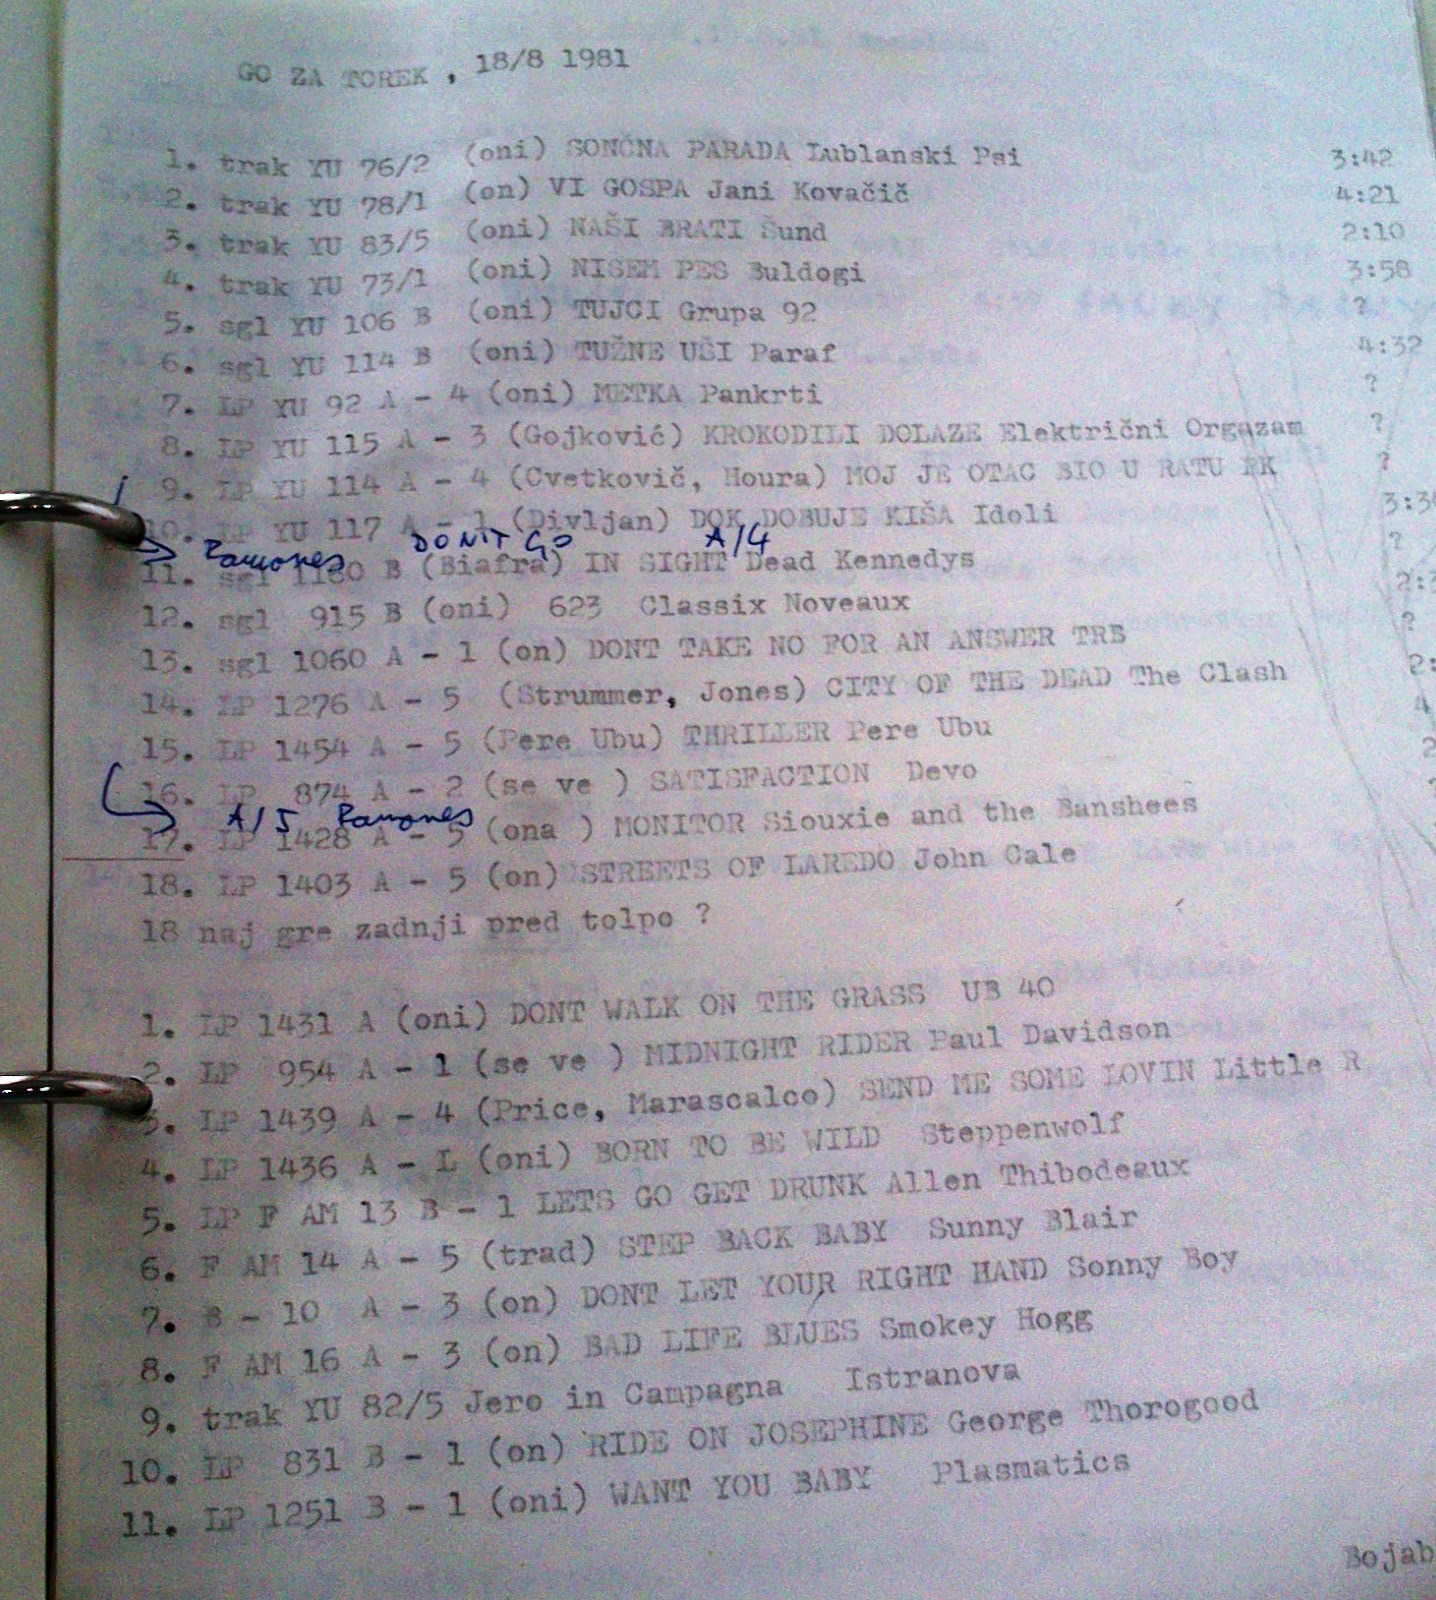 GO ZA TOREK , 18/8 1981
1. trak YU 76/2 (oni) SONČNA PARADA Lublanski Psi 3:42
2. trak YU 78/1 (on) VI GOSPA Jani Kovačič 4:21
3. trak YU 83/5 (oni) NAŠI BRATI Šund 2:10
4. trak YU 73/1 (oni) NISEM PES Buldogi 3:58
5. sgl YU 106 B (oni) TUJCI Grupa 92 ?
6. sgl YU 114 B (oni) TUŽNE UŠI Paraf 4:32
7. LP YU 92 A - 4 (oni) METKA Pankrti ?
8. LP YU 115 A - 3 (Gojković) KROKODILI DOLAZE Električni Orgazam ?
9. LP YU 114 A - 4 (Cvetkovič, Houra) MOJ JE OTAC BIO U RATU FK ?
10. LP YU 117 A - 1 (Divljan) DOK DOBUJE KIŠA Idoli
Ramones DON'T GO A/4
11. sgl 1180 B (Biafra) IN SIGHT Dead Kennedys ?
12. sgl 915 B (oni) 623 Classix Noveaux
13. sgl 1060 A - 1 (on) DONT TAKE NO FOR AN ANSWER TRB ?
14. LP 1276 A - 5 (Strummer, Jones) CITY OF THE DEAD The Clash
15. LP 1454 A - 5 (Pere Ubu) THRILLER Pere Ubu
16. LP 874 A - 2 (se ve ) SATISFACTION Devo
A/5 Ramones
17. LP 1428 A - 5 (ona ) MONITOR Siouxie and the Banshees
18. LP 1403 A - 5 (on) STREETS OF LAREDO John Cale
18 naj gre zadnji pred tolpo ?
1. LP 1431 A (oni) DONT WALK ON THE GRASS UB 40
2. LP 954 A - 1 (se ve ) MIDNIGHT RIDER Paul Davidson
3. LP 1439 A - 4 (Price, Marascalco) SEND ME SOME LOVIN Little R
4. LP 1436 A - L (oni) BORN TO BE WILD Steppenwolf
5. LP F AM 13 B - 1 LETS GO GET DRUNK Allen Thibodeaux
6. F AM 14 A - 5 (trad) STEP BACK BABY Sunny Blair
7. B - 10 A - 3 (on) DONT LET YOUR RIGHT HAND Sonny Boy
8. F AM 16 A - 3 (on) BAD LIFE BLUES Smokey Hogg
9. trak YU 82/5 Jero in Campagna Istranova
10. LP 831 B - 1 (on) RIDE ON JOSEPHINE George Thorogood
11. LP 1251 B - 1 (oni) WANT YOU BABY Plasmatics
Bojab